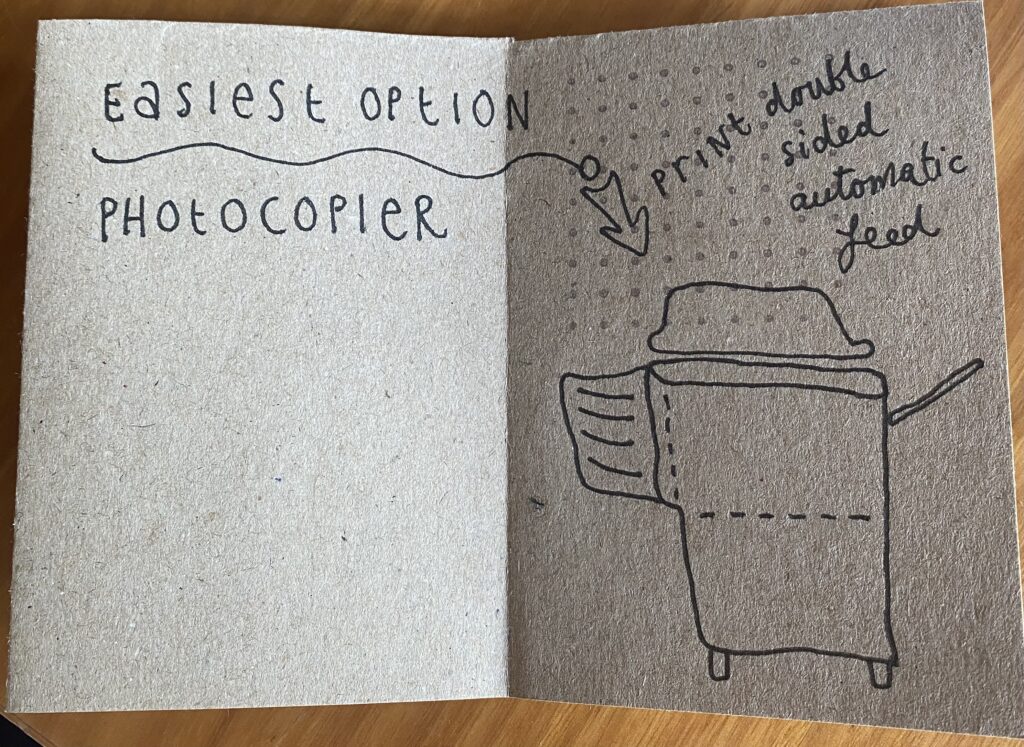 Easiest option
Photocopier
print double
sided
automatic
feed